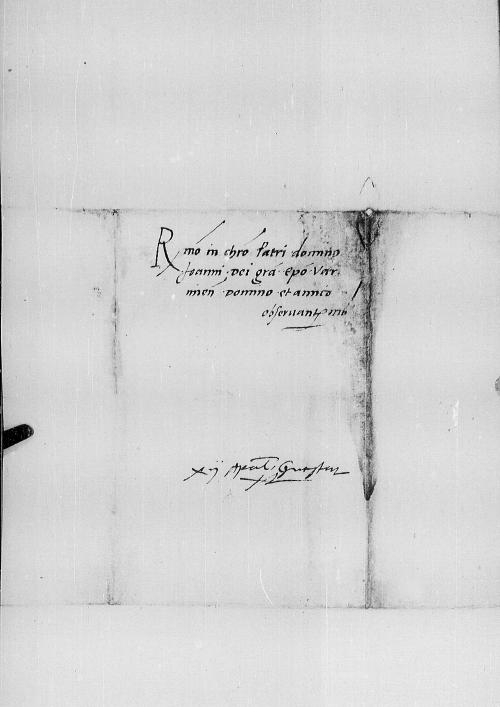 Rmo in chro Patri domino
Joanni Dei gra epo Var-
mien Domino et amico
observant
xij